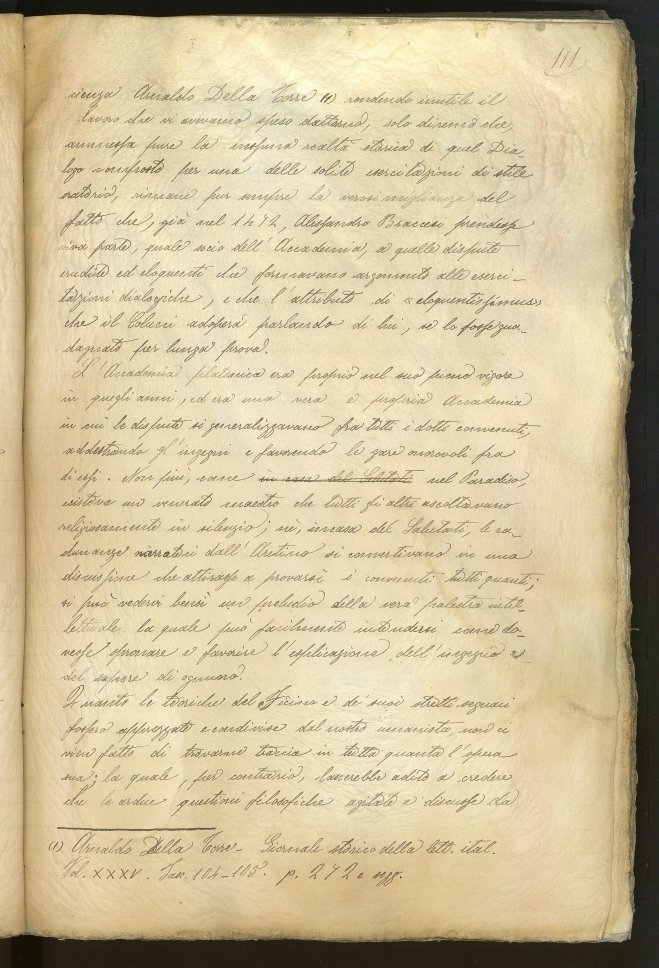 111
cienza Arnaldo Della Torre (1) rendendo inutile il
lavoro che vi avevamo speso dattorno, solo diremo che,
ammessa pure la nessuna realtà storica di quel Dia-
logo composto per una delle solite esercitazioni di stile
oratorio, rimane pur sempre la verosimiglianza del
fatto che, già nel 1472, Alessandro Braccesi prendesse
viva parte, quale socio dell'Accademia, a quelle dispute
erudite ed eloquenti che formavano argomento alle eserci-
tazioni dialogiche, e che l'attributo di «eloquentissimus»
che il Colucci adopera parlando di lui, se lo fosse gua-
dagnato per lunga prova.
L'Accademia platonica era proprio nel suo pieno vigore
in quegli anni, ed era una vera e propria Accademia
in cui le dispute si generalizzavano fra tutti i dotti convenuti,
addestrando gl'ingegni e favorendo le gare onorevoli fra
di essi. Non più, come in casa del Salutati nel Paradiso,
esisteva un venerato maestro che tutti gli altri ascoltavano
religiosamente in silenzio; nè, in casa del Salutati, le ra-
dunanze narrateci dall'Aretino si convertivano in una
discussione che attirasse a provarsi i convenuti tutti quanti;
si può vedervi bensì un preludio della vera palestra intel-
lettuale la quale può facilmente intendersi come do-
vesse spronare e favorire l'esplicazione dell'ingegno e
del sapere di ognuno.
Quanto le teoriche del Ficino e de' suoi stretti seguaci
fossero apprezzate e condivise dal nostro umanista, non ci
vien fatto di trovarne traccia in tutta quanta l'opera
sua; la quale, per contrario, lascerebbe adito a credere
che le ardue questioni filosofiche agitate e discusse da
(1) Arnaldo Della Torre - Giornale storico della lett. ital.
Vol. XXXV. Fasc. 104-105. p. 272 e segg.